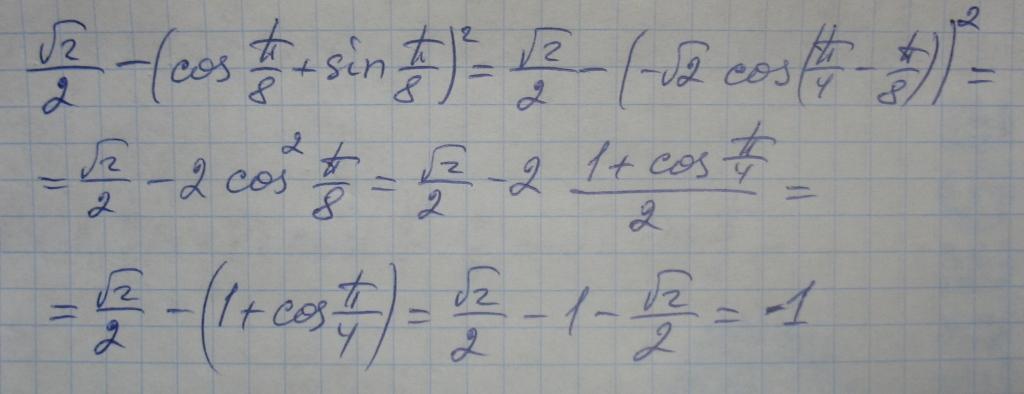 √2/2 − (cos π/8 + sin π/8)² = √2/2 − (−√2 cos(π/4 − π/8))² =
= √2/2 − 2 cos² π/8 = √2/2 − 2 (1 + cos π/4)/2 =
= √2/2 − (1 + cos π/4) = √2/2 − 1 − √2/2 = −1